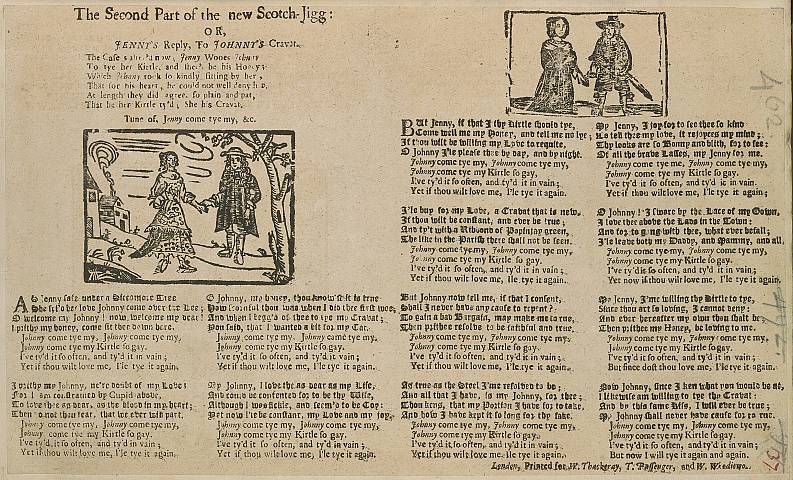 The Second Part of the new Scotch-Jigg:
OR,
JENNY'S Reply, To JOHNNY'S Cravat.
The Case is alter'd now, Jenny Wooes Johnny
To tye her Kirtle, and she'l be his Honey;
Which Johnny took so kindly sitting by her,
That for his heart, he could not well deny her.
At length they did agree, so plain and pat,
That he her Kirtle ty'd, She his Cravat.
Tune of, Jenny come tye my, &c.
AS Jenny sate under a Siccamore Tree
She spi'd her love Johnny come over the Lee;
O welcome my Johnny! now, welcome my dear!
I prithy my honey, come sit thee down here.
Johnny come tye my, Johnny come tye my,
Johnny come tye my Kirtle so gay.
I've ty'd it so often, and ty'd it in vain;
Yet if thou wilt love me, I'le tye it again.
I prithy my Johnny, ne're doubt of my Love;
For I am constrained by Cupid above,
To love thee as dear, as the blood in my heart;
Then do not thou fear, that we ever will part.
Johnny come tye my, Johnny come tye my,
Johnny come tye my Kirtle so gay.
I've ty'd it so often, and ty'd in vain;
Yet if thou wilt love me, I'le tye it again.
O Johnny, my honey, thou know'st it is true
How scornful thou was when I did thee first woo;
And when I begg'd of thee to tye my Cravat;
You said, that I wanted a bit for my Cat.
Johnny come tye my, Johnny come tye my,
Johnny come tye my Kirtle so gay.
I've ty'd it so often, and ty'd it in vain;
Yet if thou wilt love me, I'le tye it again.
My Johnny, I love the as dear as my Life,
And could be contented for to be thy Wife,
Although I was fickle, and seem'd to be Coy:
Yet now I'le be constant, my Love and my joy,
Johnny come tye my, Johnny come tye my,
Johnny come tye my Kirtle so gay.
I've ty'd it so often, and ty'd it in vain;
Yet if thou wilt love me, I'le tye it again.
BUt Jenny, if that I thy Kirtle should tye,
Come tell me my Honey, and tell me no lye;
If thou wilt be willing my Love to requite,
O Johnny I'le please thee by day, and by night.
Johnny come tye my, Johnny come tye my,
Johnny come tye my Kirtle so gay,
I've ty'd it so often, and ty'd it in vain;
Yet if thou wilt love me, I'le tye it again.
I'le buy for my Love, a Cravat that is new,
If thou wilt be constant, and ever be true;
And ty't with a Ribbond of Popinjay green,
The like in the Parish there shall not be seen.
Johnny come tye my, Johnny come tye my,
Johnny come tye my Kirtle so gay.
I've ty'd it so often, and ty'd it in vain;
Yet if thou wilt love me, I'le tye it again.
But Johnny now tell me, if that I consent,
Shall I never have any cause to repent?
To gain a bad Bargain, may make me to rue,
Then prithee resolve to be faithful and true.
Johnny come tye my, Johnny come tye my;
Johnny come tye my Kirtle so gay.
I've ty'd it so often, and ty'd it in vain.
Yet if thou wilt love me, I'le tye it again.
As true as the Steel I'me resolved to be;
And all that I have, is my Johnny, for thee;
Thou kens, that my Portion I have for to take,
And how I have kept it so long for thy sake.
Johnny come tye my, Johnny come tye my,
Johnny come tye my Kirtle so gay:
I've ty'd it so often, and ty'd it in vain;
Yet if thou wilt love me, I'le tye it again.
My Jenny, I joy for to see thee so kind
To tell thee my love, it rejoyces my mind;
Thy looks are so Bonny and blith, for to see:
Of all the brave Lasses, my Jenny for me.
Johnny come tye me, Johnny come tye my,
Johnny come tye my Kirtle so gay.
I've ty'd it so often, and ty'd it in vain;
Yet if thou wilt love me, I'le tye it again.
O Johnny! I swore by the Lace of my Gown,
I love thee above the Lads in the Town:
And for to gang with thee, what ever befall;
I'le leave both my Daddy, and Mammy, and all,
Johnny come tye my, Johnny come tye my,
Johnny come tye my Kirtle so gay.
I've ty'd it so often, and ty'd it in vain;
Yet now if thou wilt love me, I'le tye it again.
My Jenny, I'me willing thy Kirtle to tye,
Since thou art so loving, I cannot deny:
And ever hereafter my own thou shalt be;
Then prithee my Honey, be loving to me.
Johnny come tye my, Johnny come tye my,
Johnny come tye my Kirtle so gay.
I've ty'd it so often, and ty'd it in vain;
But since dost thou love me, I'le tye it again.
Now Johnny, since I ken what you would be at,
I likewise am willing to tye thy Cravat:
And by this same Kiss, I will ever be true;
My Johnny shall never have cause for to rue.
Johnny come tye my, Johnny come tye my,
Johnny come tye my Kirtle so gay.
I've ty'd it so often, and ty'd it in vain;
But now I will tye it again and again.
London, Printed for W. Thackeray, T. Passenger, and W. Whitwood.
402.
412.
37